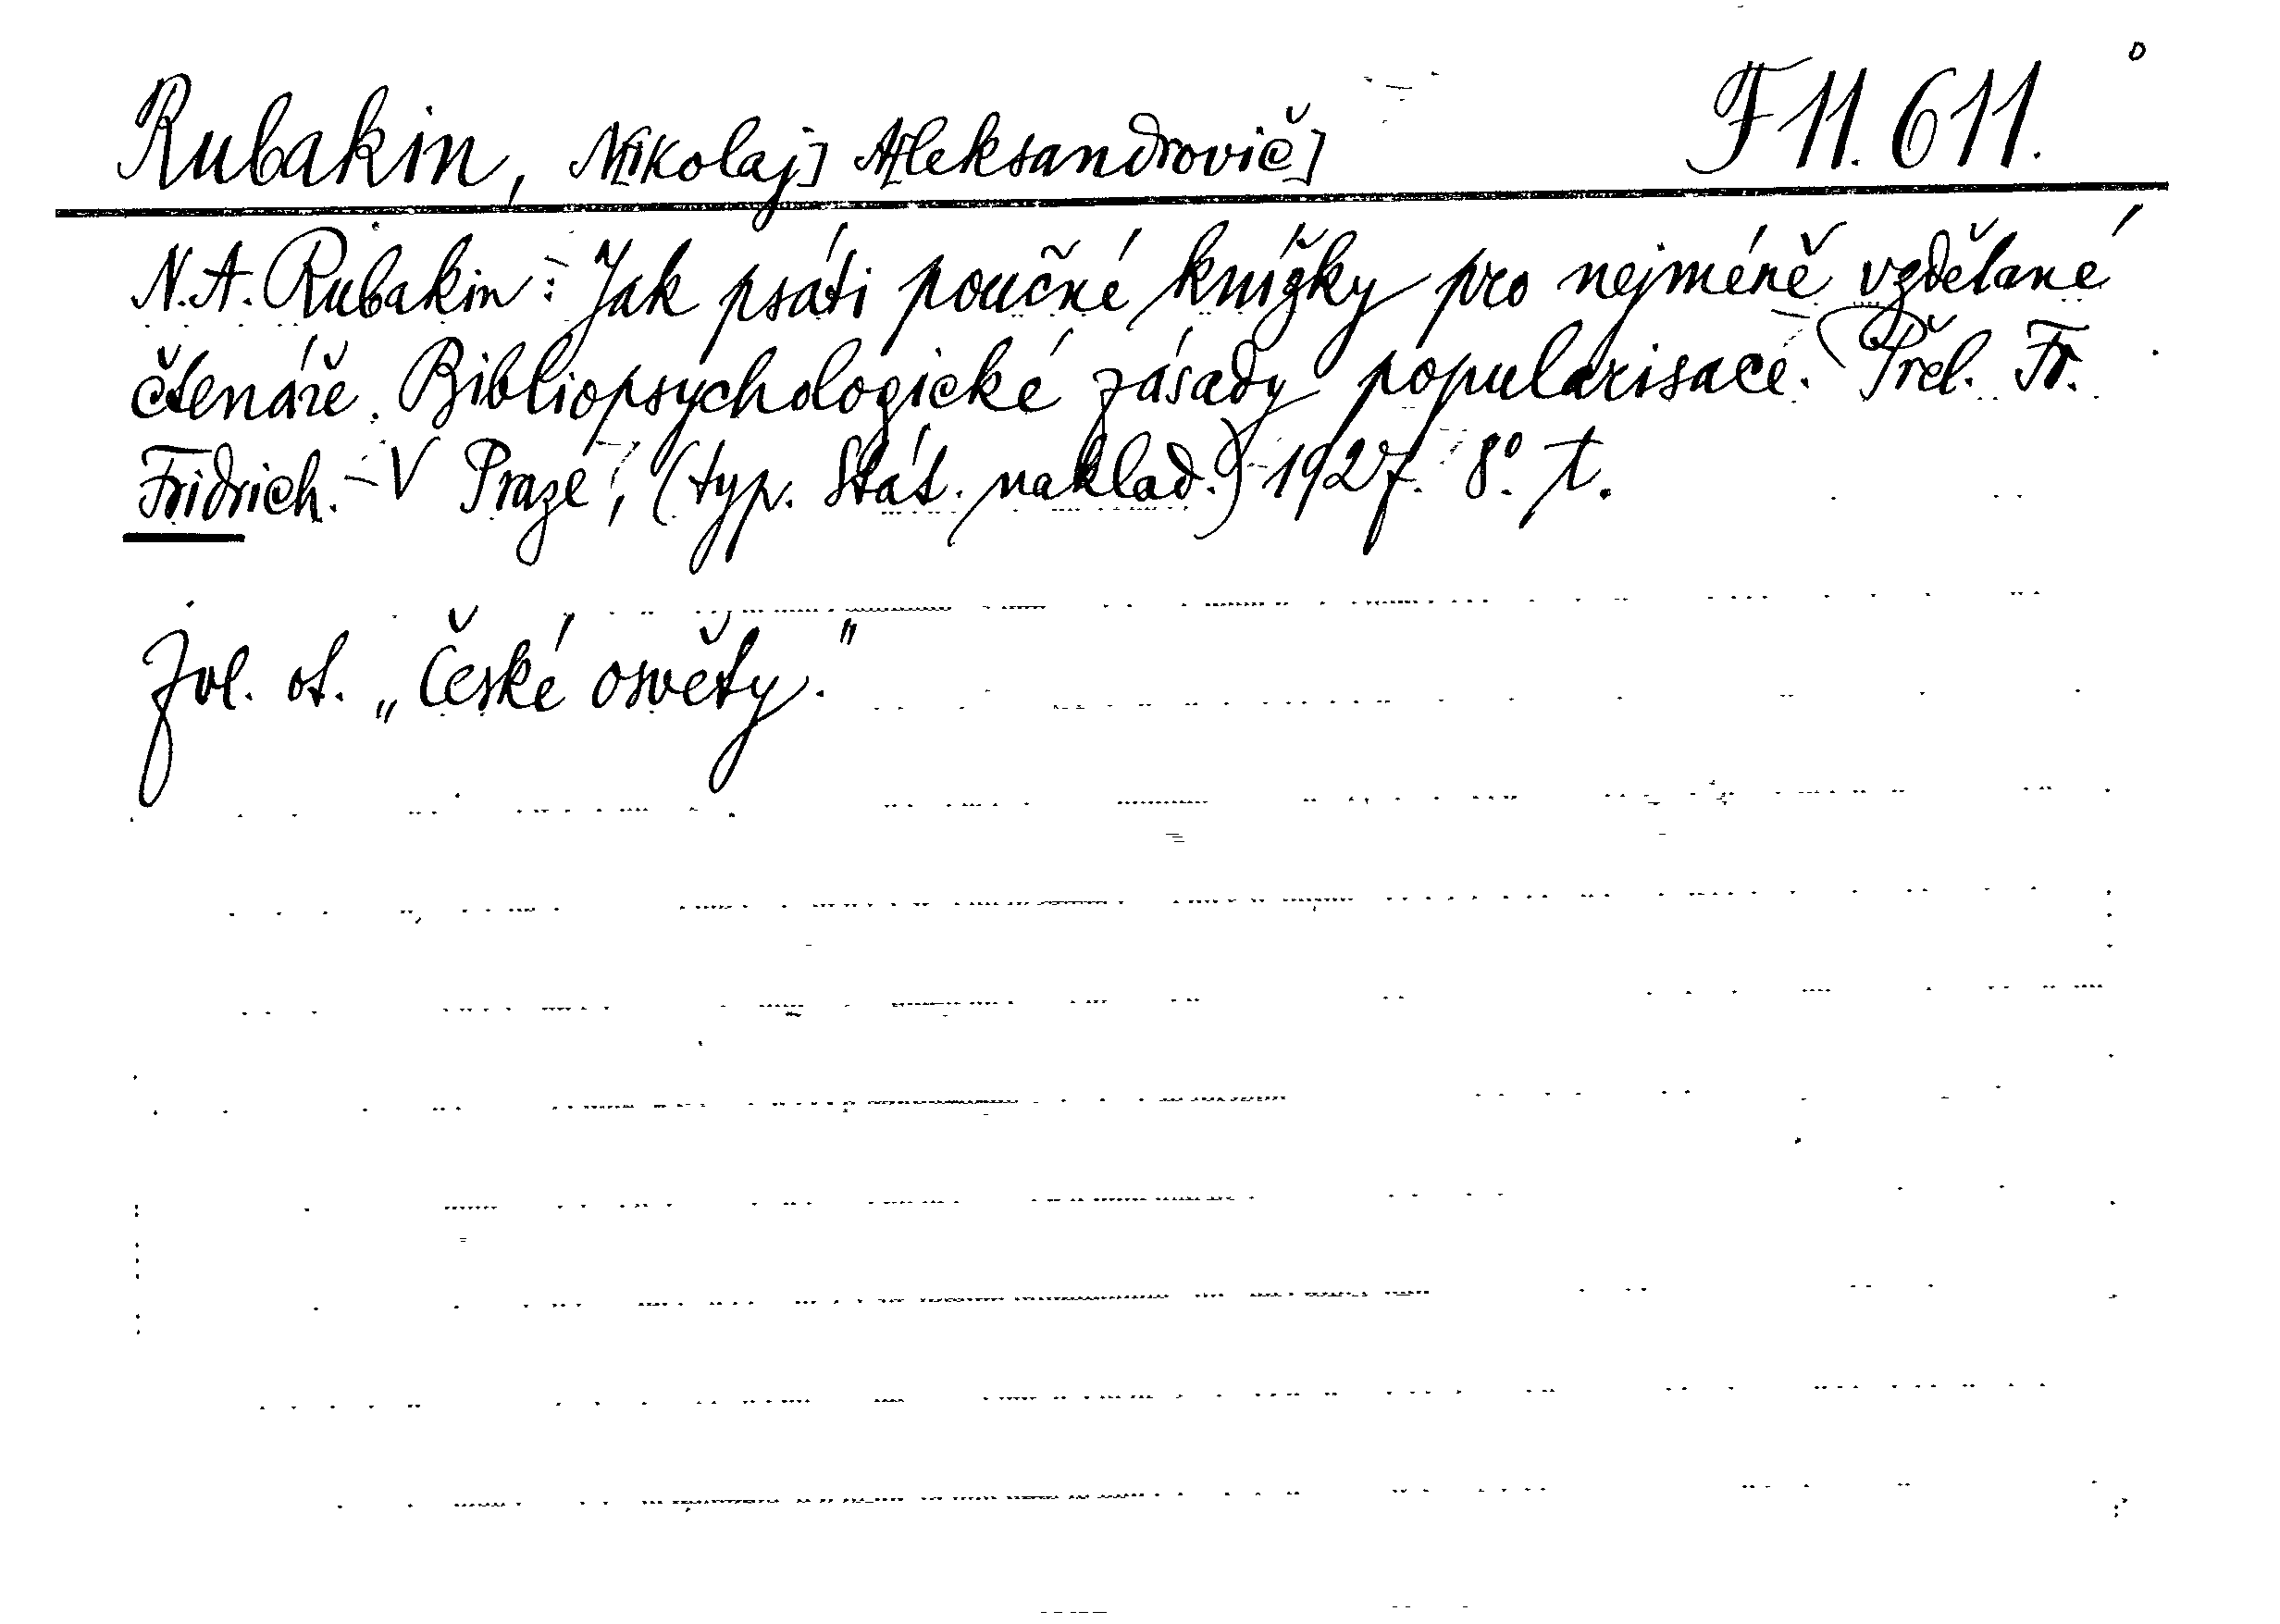 Rubakin, N[ikolaj] A[leksandrovič] F 11.611.
N.A. Rubakin: Jak psáti poučné knížky pro nejméně vzdělané
čtenáře. Bibliopsychologické zásady popularisace. Přel. Fr.
Fridrich. - V Praze, (typ. Stát. naklad.) 1927. 8° t.
Zvl. ot. „České osvěty."